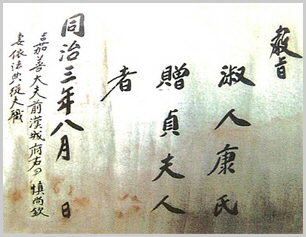 敎旨
淑人康氏
贈貞夫人
者
同治三年八月 日
嘉善大夫前漢城府右尹 愼尚欽
妻依法典從夫職